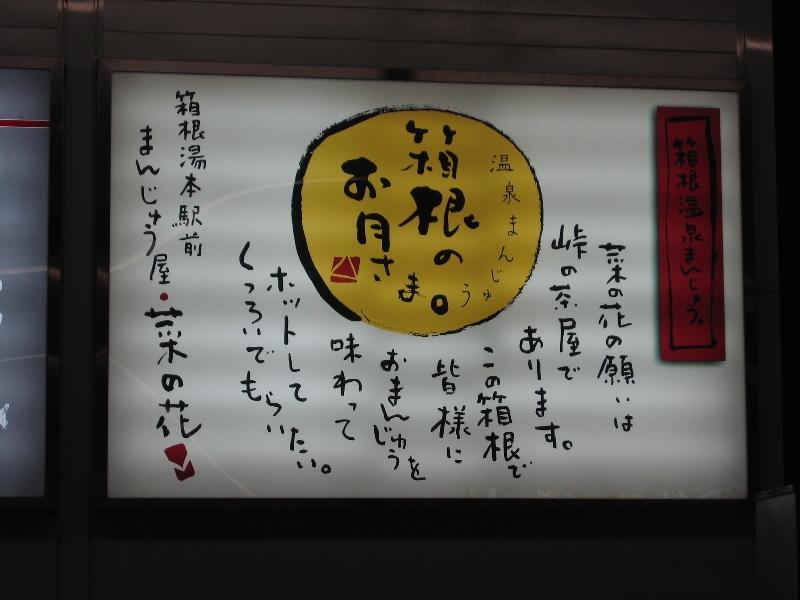 箱根温泉まんじゅう。
菜の花の願いは
峠の茶屋で
あります。
この箱根で
皆様に
おまんじゅうを
味わって
ホットして
もらいたい。
くつろいでも
温泉まんじゅう
箱根の。
お月さま
箱根湯本駅前
まんじゅう屋・菜の花